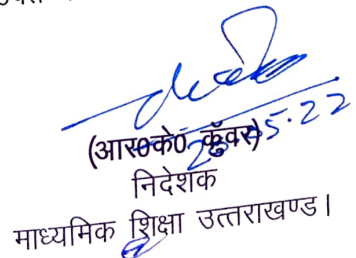 (आर०के० कुँवर)
निदेशक
माध्यमिक शिक्षा उत्तराखण्ड।